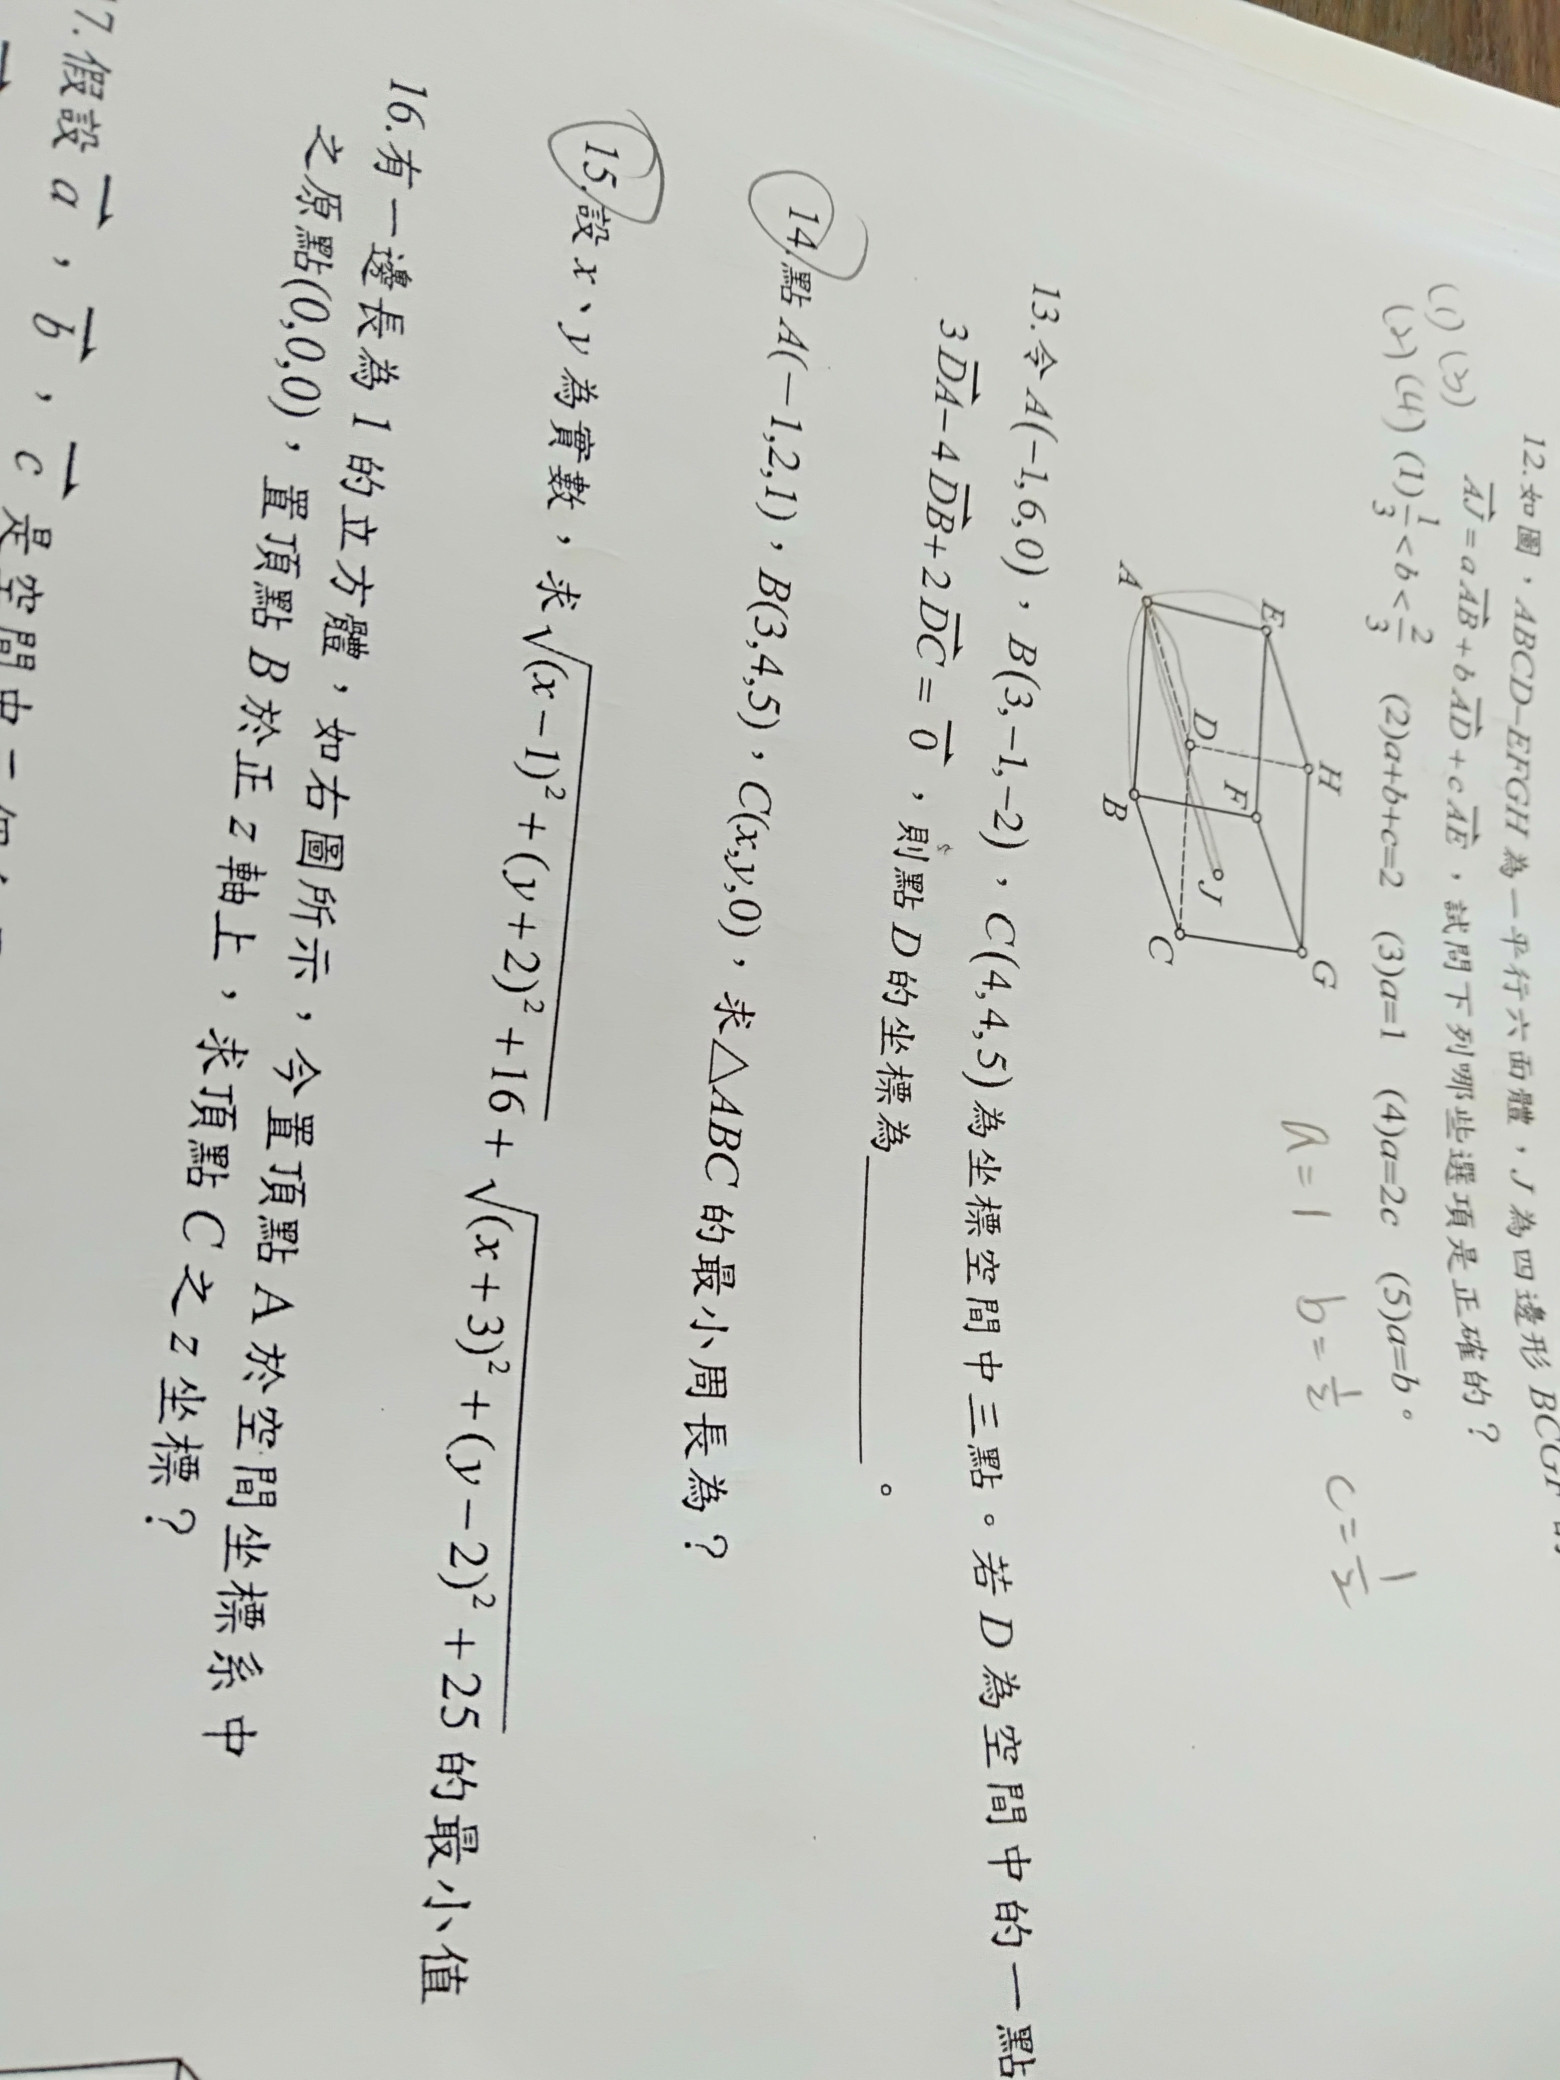 12.如圖，ABCD-EFGH 為一平行六面體，J 為四邊形 BCGF 的
AJ = a AB + b AD + c AE，試問下列哪些選項是正確的？
(1) (3)
(2) (4) (1) 1/3 < b < 2/3 (2)a+b+c=2 (3)a=1 (4)a=2c (5)a=b。
a=1 b=1/2 c=1/2
E H
F G
A D J
B C
13.令 A(−1,6,0)，B(3,−1,−2)，C(4,4,5)為坐標空間中三點。若 D 為空間中的一點
3DA−4DB+2DC=0，則點 D 的坐標為＿＿＿＿＿＿。
14.點 A(−1,2,1)，B(3,4,5)，C(x,y,0)，求△ABC 的最小周長為？
15.設 x、y 為實數，求√(x−1)²+(y+2)²+16 + √(x+3)²+(y−2)²+25 的最小值
16.有一邊長為 1 的立方體，如右圖所示，今置頂點 A 於空間坐標系中
之原點(0,0,0)，置頂點 B 於正 z 軸上，求頂點 C 之 z 坐標？
7.假設 a，b，c 是空間中